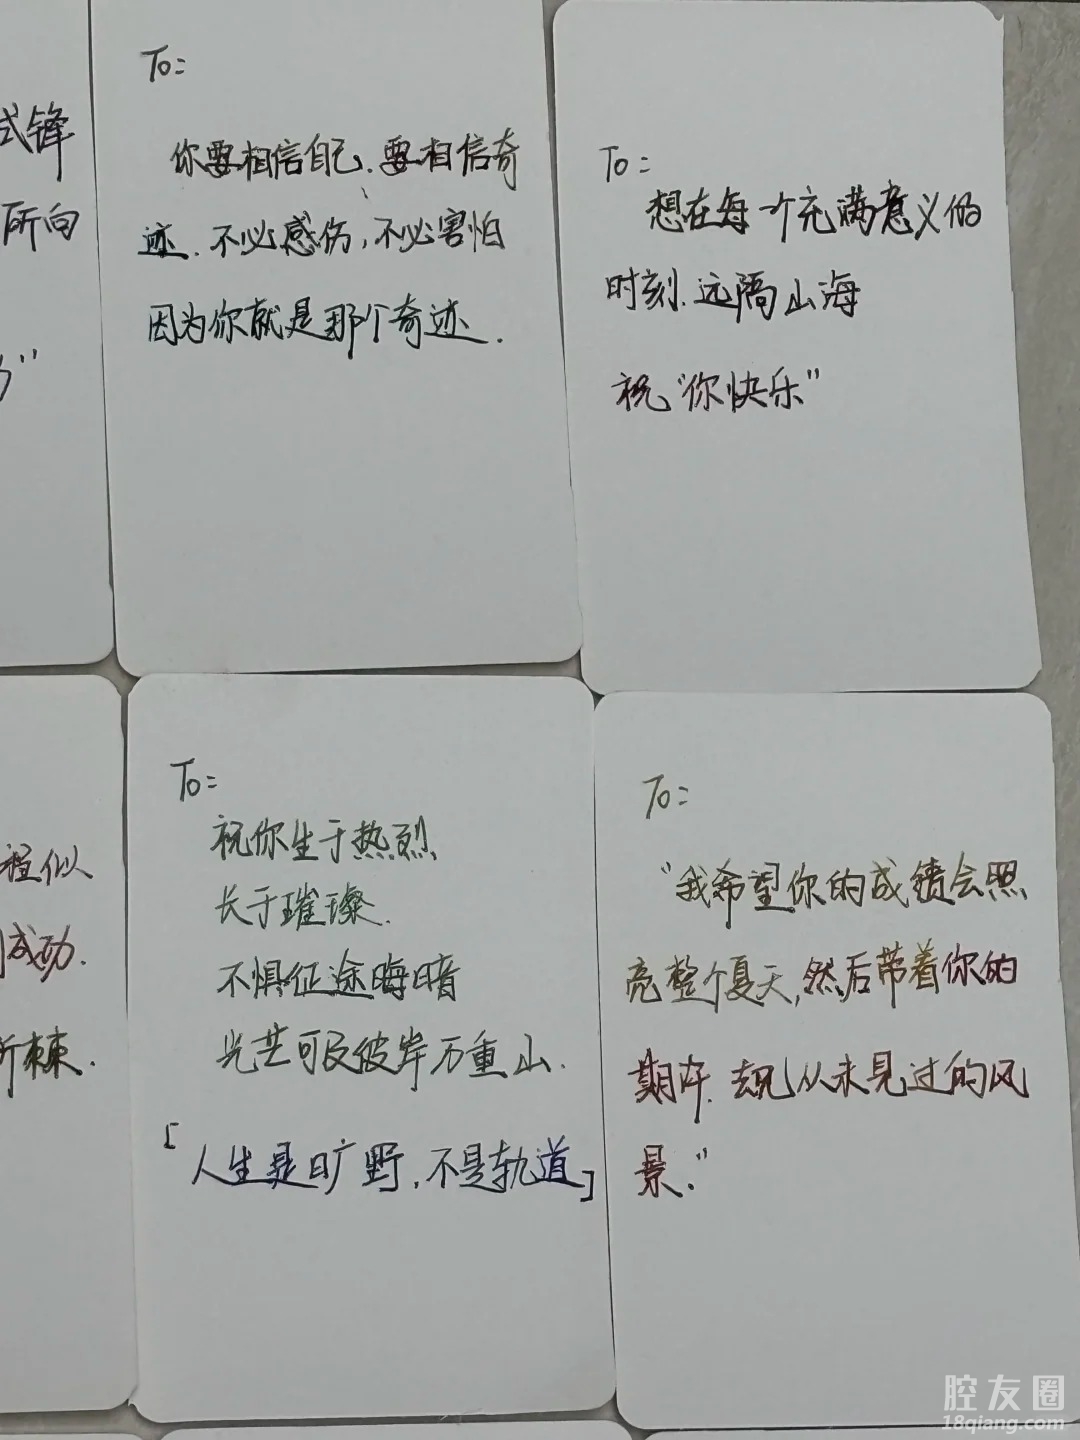 式锋
所向
To:
你要相信自己.要相信奇
迹.不必感伤,不必害怕
因为你就是那个奇迹.
To:
想在每一个充满意义的
时刻.远隔山海
祝"你快乐"
程似
成功.
荆棘.
To:
祝你生于热烈
长于璀璨.
不惧征途晦暗
光芒可及彼岸万重山.
「人生是旷野,不是轨道」
To:
"我希望你的成绩会照
亮整个夏天,然后带着你的
期许.去见从未见过的风
景."
腔友圈
18qiang.com